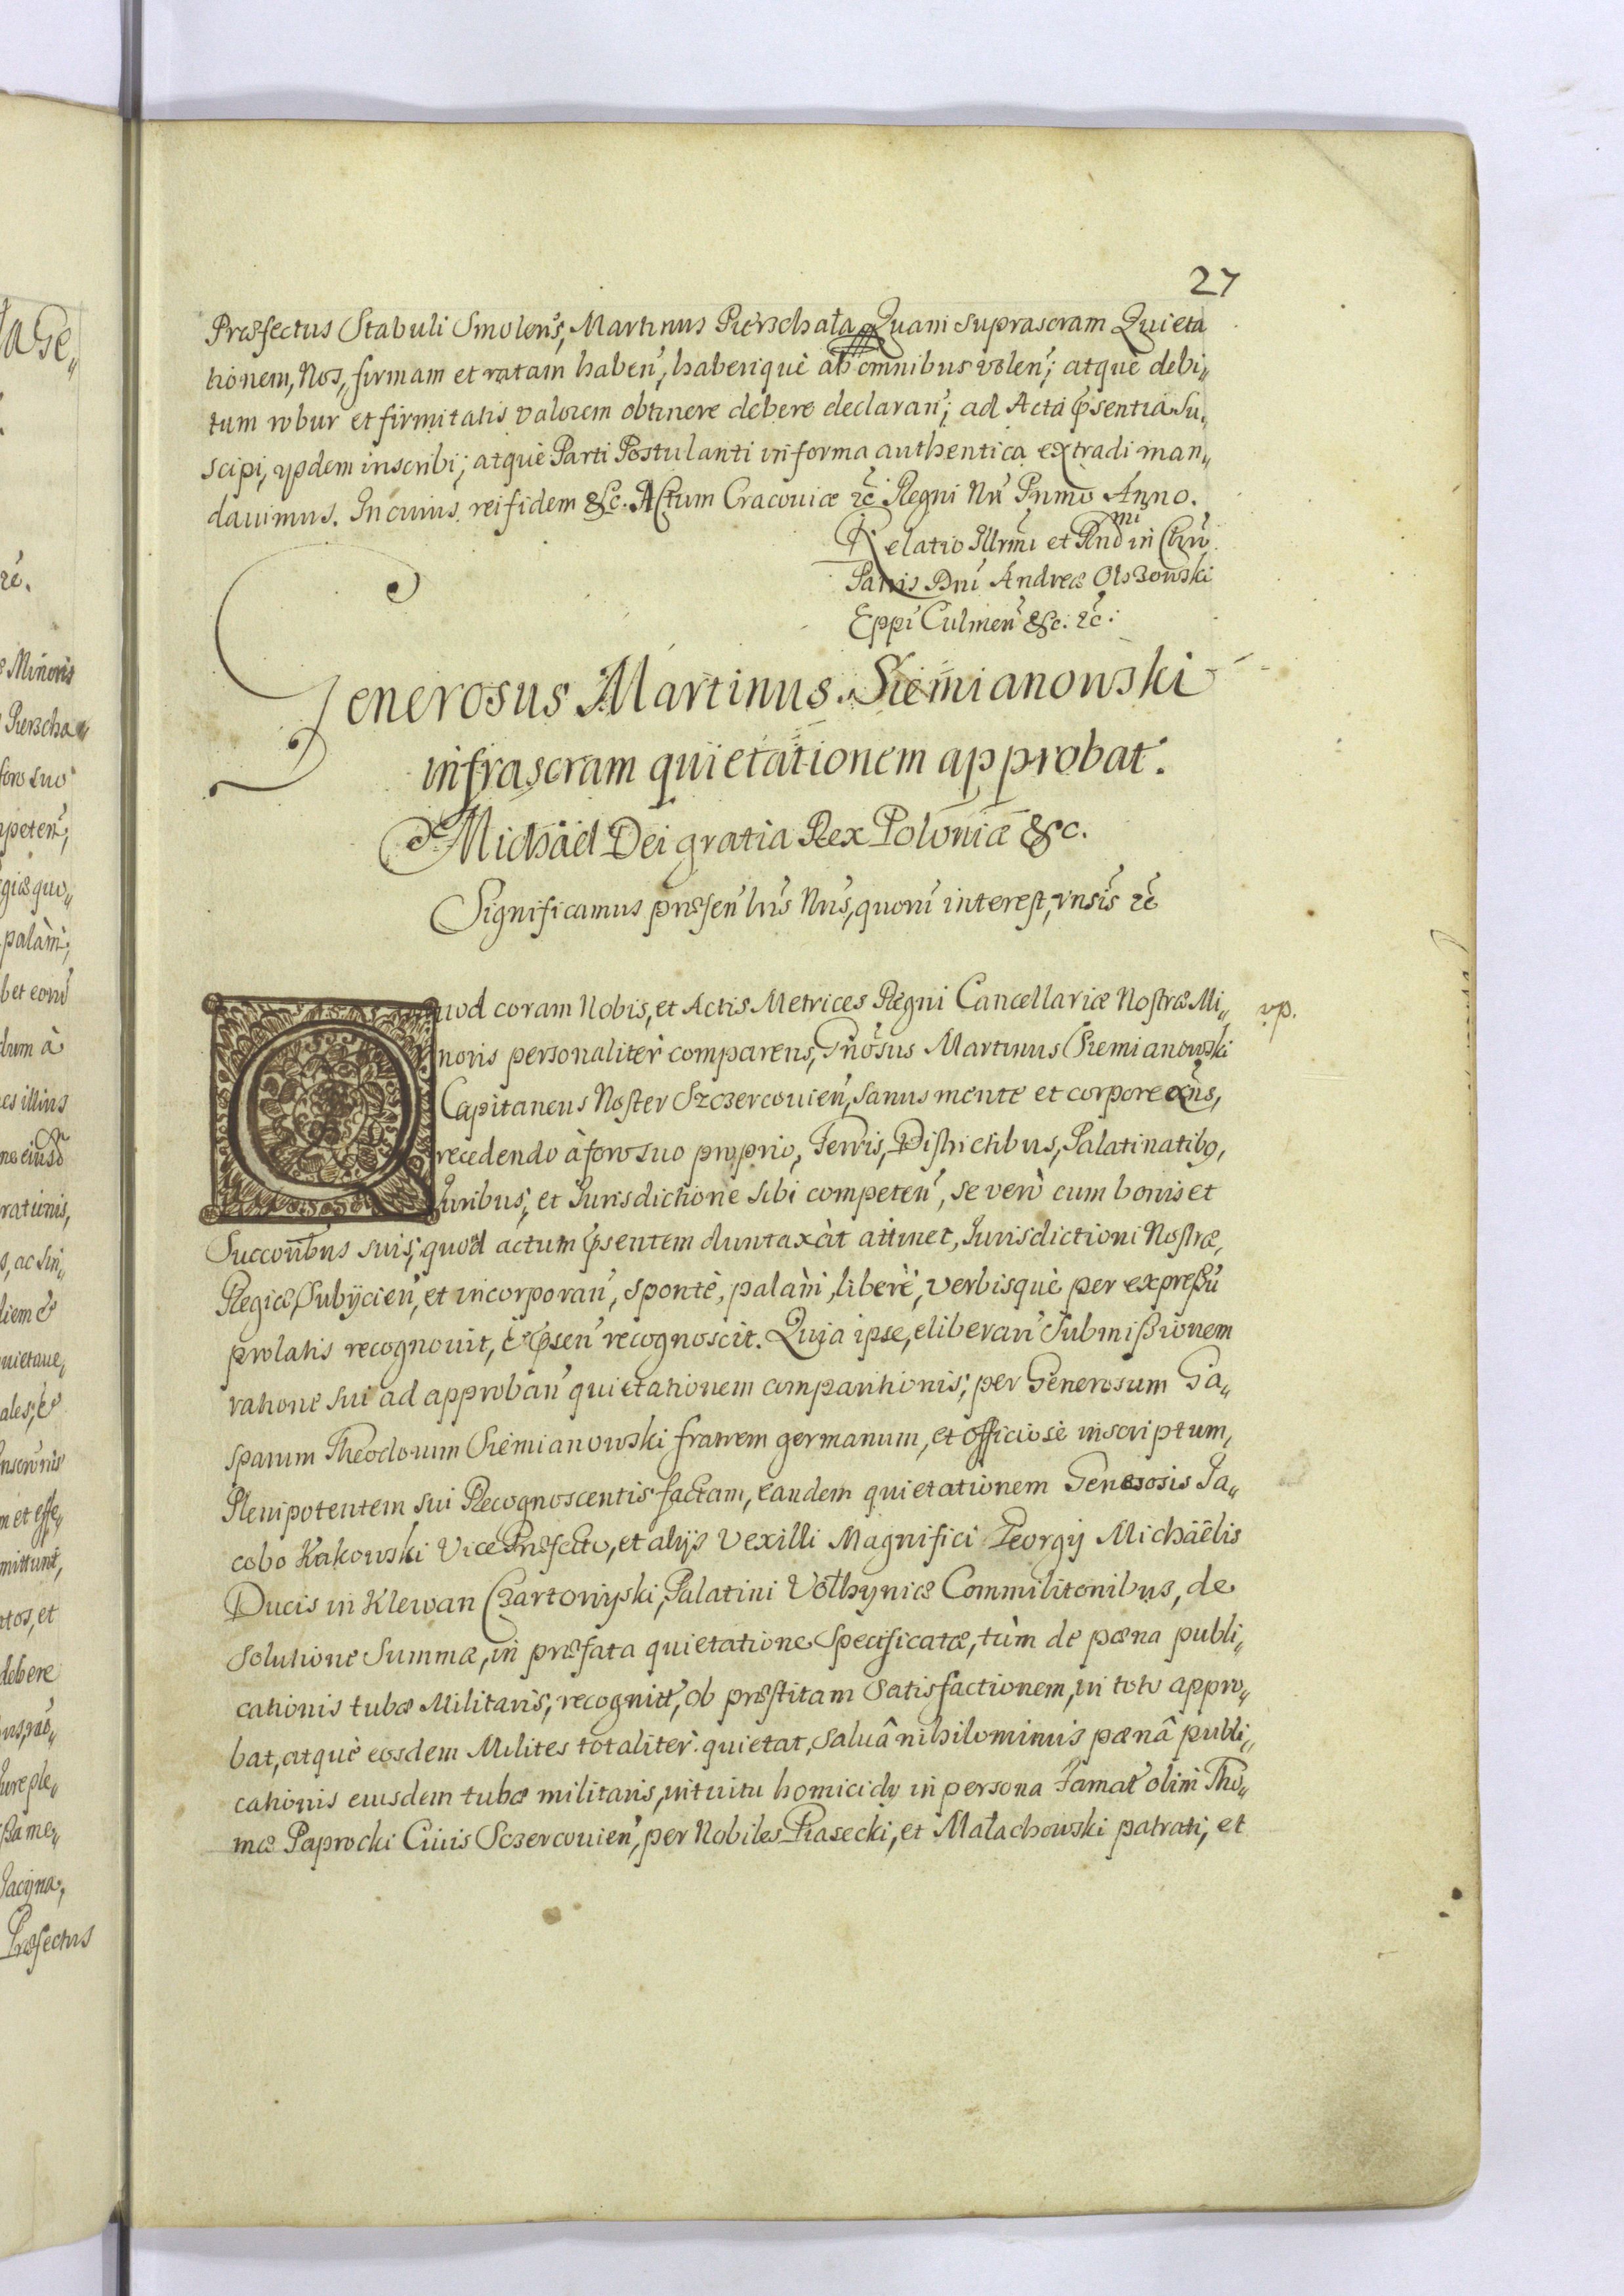 27
Præfectus Stabuli Smolen̄s, Martinus Pierschała Quam suprascram Quieta
tionem, Nos, firmam et ratam haben̄, haberique ab omnibus volen̄; atque debi„
tum robur et firmitatis valorem obtinere debere declaran̄; ad Acta p̄sentia su„
scipi, ijsdem inscribi; atque Parti Postulanti in forma authentica extradi man„
davimus. In cuius rei fidem &c. Actum Cracoviæ etc̄ Regni Nr̄i Primo Anno.
Relatio Illr̄mi et Rnd̄mi in Chrō
Patris Dn̄i Andreæ Olszowski
Epp̄i Culmen̄ &c. etc̄.
Generosus Martinus Siemianowski
infrascram quietationem approbat.
Michäel Dei gratia Rex Poloniæ &c.
Significamus præsen̄ lr̄is Nr̄is, quorū interest, vnsīs etc̄
Quod coram Nobis, et Actis Metrices Regni Cancellariæ Nostræ Mi„
vp.
noris personaliter comparens, Gn̄osus Martinus Siemianowski
Capitaneus Noster Szczercouien̄, sanus mente et corpore exn̄s,
recedendo à foro suo proprio, Terris, Districtibus, Palatinatibq,
Iuribus, et Iurisdictione sibi competen̄, se verò cum bonis et
Succorībus suis, quod actum p̄sentem duntaxàt attinet, Iurisdictioni Nostræ,
Regiæ, Subijcien̄, et incorporan̄, sponte, palàm, liberè, verbisquè per expreßū
prolatis recognouit, & p̄sen̄ recognoscit. Quia ipse, eliberan̄ Submißionem
ratione sui ad approban̄ quietationem comparitionis, per Generosum Ga„
sparum Theodorum Siemianowski fratrem germanum, et officiosè inscriptum,
Plenipotentem sui Recognoscentis factam, eandem quietationem Generosis Ja„
cobo Kakowski Vice Præfecto, et alijs Vexilli Magnifici Georgij Michäelis
Ducis in Klewan Czartoryjski, Palatini Volhyniæ Commilitonibus, de
solutione Summæ, in præfata quietatione Specificatæ, tùm de pœna publi„
cationis tubæ Militaris, recognitt̄, ob præstitam Satisfactionem, in toto appro„
bat, atquè eosdem Milites totaliter quietat, Saluâ nihilominus pœnâ publi„
cationis eiusdem tubæ militaris, intuitu homicidy in persona Famat̄ olim Tho„
mæ Paprocki Ciuis Sczercouien̄, per Nobiles Piasecki, et Małachowski patrati, et